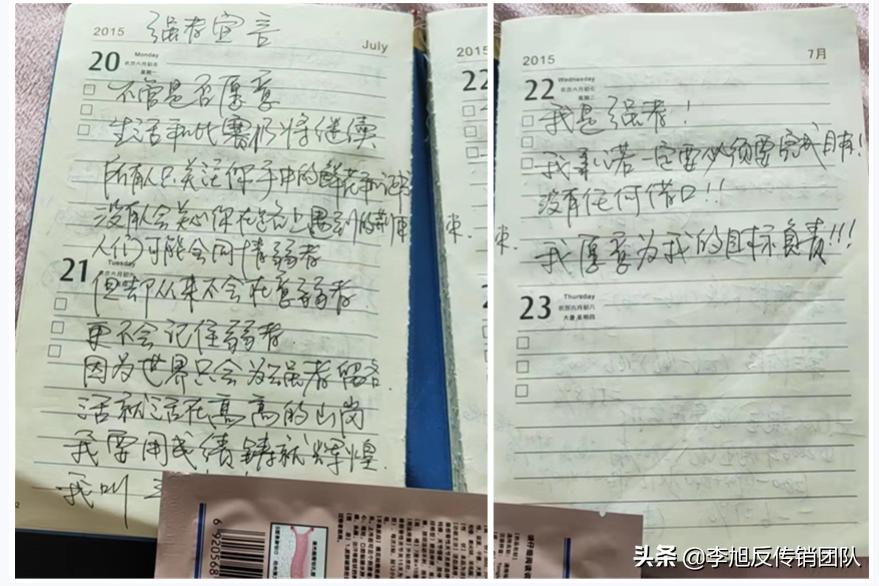 强者宣言
2015
July
20
Monday
农历六月初五
星期一
不管是否愿意
生活和比赛仍将继续
所有人只关注你手中的鲜花和证书
没有人会关心你在跑道上遇到的荆
人们可能会同情弱者
21
Tuesday
农历六月初六
但却从来不会在意弱者
更不会记住弱者.
因为世界只会为强者留名.
活就活在高高的山岗
我要用成绩铸就辉煌.
我叫
6920568
2015
22
2015
7月
22
Wednesday
农历六月初七
星期三
我是强者!
我承诺一定要必须要完成目标!
没有任何借口!!
我愿意为我的目标负责!!!
23
Thursday
农历六月初八
大暑 星期四
头条 @李旭反传销团队